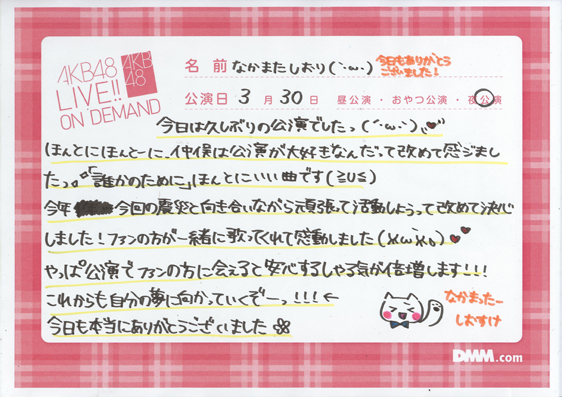 AKB48
LIVE!!
ON DEMAND
AKB
48
名前 なかまたしおり(´･ω･`)
今日もありがとう
ございました!
公演日 3月30日・昼公演・おやつ公演・夜公演
今日は久しぶりの公演でしたっ(´･ω･`)
ほんとにほんとーに、仲俣は公演が大好きなんだって改めて感じまし
たっ。「誰かのために」ほんとにいい曲です(≧∪≦)
今年 今回の震災と向き合いながら頑張って活動しようって改めて決心
しました!ファンの方が一緒に歌ってくれて感動しました
やっぱ公演でファンの方に会えると安心するしやる気が倍増します!!!
これからも自分の夢に向かっていくぞーっ!!!←
今日も本当にありがとうございました
なかまったー
しおすけ
DMM.com